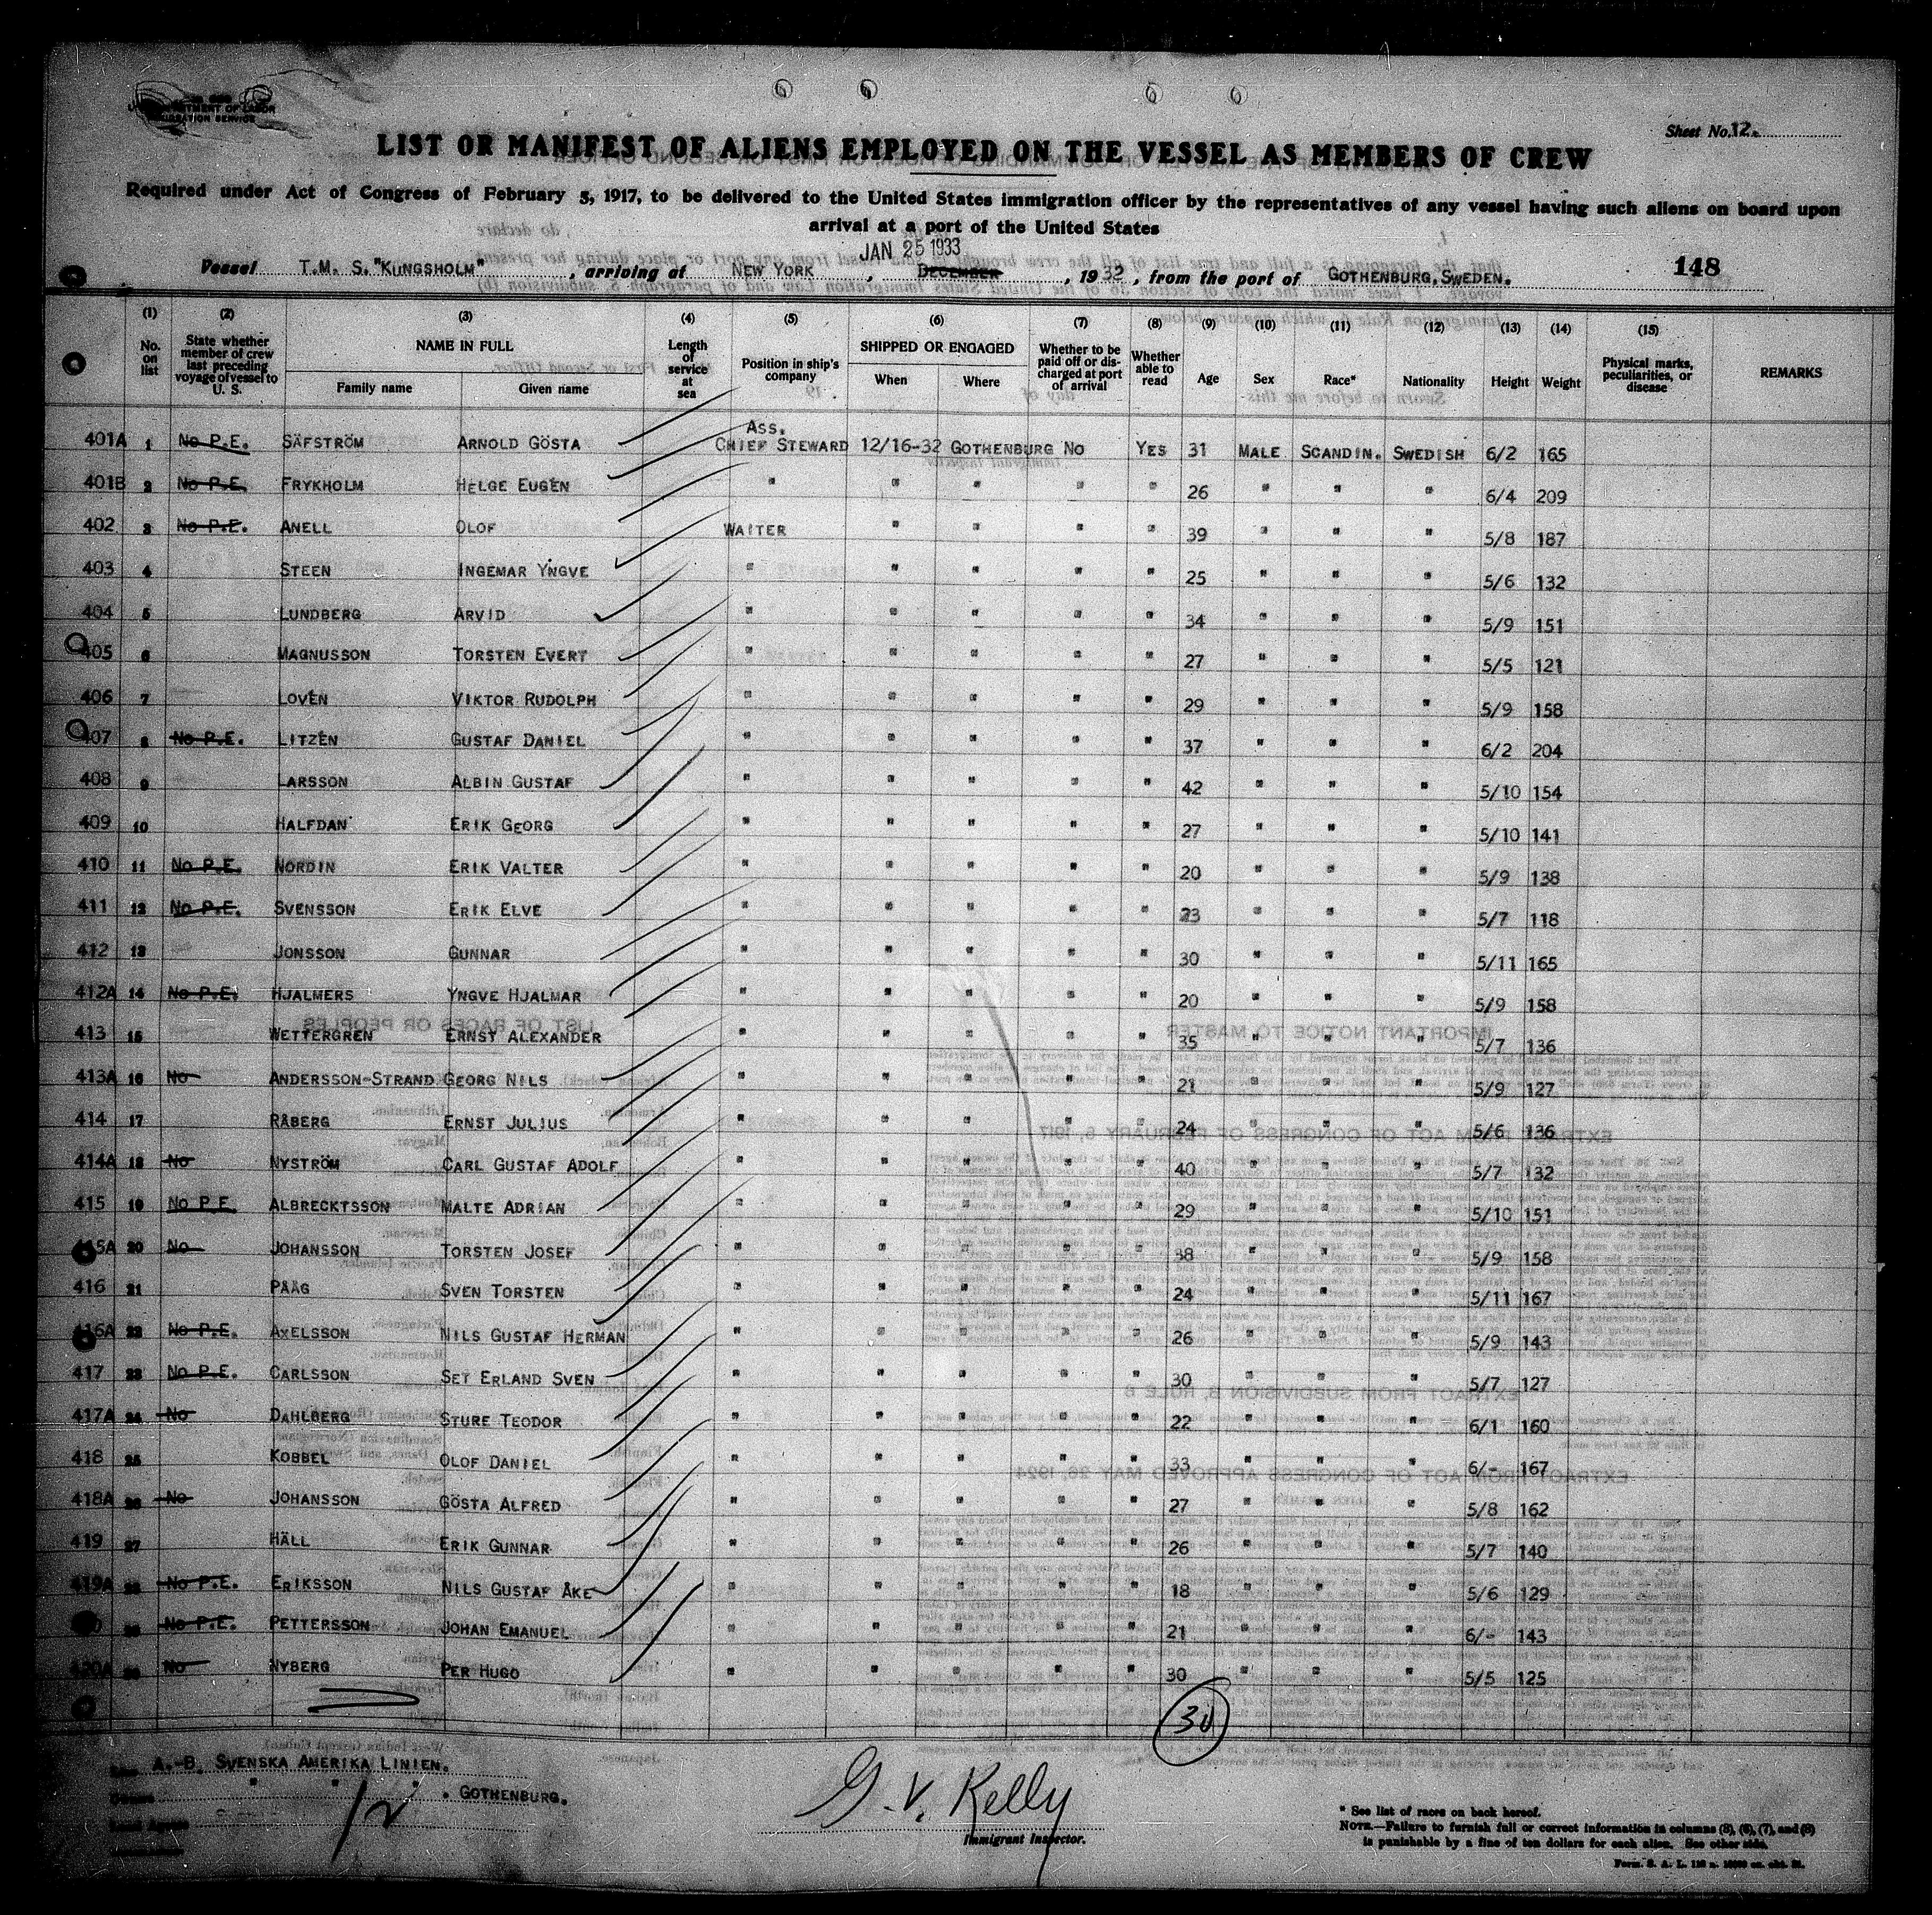 U.S. DEPARTMENT OF LABOR
IMMIGRATION SERVICE
Sheet No. 12.
LIST OR MANIFEST OF ALIENS EMPLOYED ON THE VESSEL AS MEMBERS OF CREW
Required under Act of Congress of February 5, 1917, to be delivered to the United States immigration officer by the representatives of any vessel having such aliens on board upon
arrival at a port of the United States
JAN 25 1933
Vessel T.M. S. "KUNGSHOLM", arriving at NEW YORK, DECEMBER, 1932, from the port of GOTHENBURG, SWEDEN.
148
(1) (2) (3) (4) (5) (6) (7) (8) (9) (10) (11) (12) (13) (14) (15)
No. on list State whether member of crew last preceding voyage of vessel to U. S. NAME IN FULL Family name Given name Length of service at sea Position in ship's company SHIPPED OR ENGAGED When Where Whether to be paid off or discharged at port of arrival Whether able to read Age Sex Race* Nationality Height Weight Physical marks, peculiarities, or disease REMARKS
401A 1 No P.E. SÄFSTRÖM ARNOLD GÖSTA ASS. CHIEF STEWARD 12/16-32 GOTHENBURG NO YES 31 MALE SCANDIN. SWEDISH 6/2 165
401B 2 No P.E. FRYKHOLM HELGE EUGEN " " " " " 26 " " " 6/4 209
402 3 No P.E. ANELL OLOF WAITER " " " " 39 " " " 5/8 187
403 4 STEEN INGEMAR YNGVE " " " " " 25 " " " 5/6 132
404 5 LUNDBERG ARVID " " " " " 34 " " " 5/9 151
405 6 MAGNUSSON TORSTEN EVERT " " " " " 27 " " " 5/5 121
406 7 LOVÉN VIKTOR RUDOLPH " " " " " 29 " " " 5/9 158
407 8 No P.E. LITZÉN GUSTAF DANIEL " " " " " 37 " " " 6/2 204
408 9 LARSSON ALBIN GUSTAF " " " " " 42 " " " 5/10 154
409 10 HALFDAN ERIK GEORG " " " " " 27 " " " 5/10 141
410 11 No P.E. NORDIN ERIK VALTER " " " " " 20 " " " 5/9 138
411 12 No P.E. SVENSSON ERIK ELVE " " " " " 23 " " " 5/7 118
412 13 JONSSON GUNNAR " " " " " 30 " " " 5/11 165
412A 14 No P.E. HJALMERS YNGVE HJALMAR " " " " " 20 " " " 5/9 158
413 15 WETTERGREN ERNST ALEXANDER " " " " " 35 " " " 5/7 136
413A 16 No ANDERSSON-STRAND GEORG NILS " " " " " 21 " " " 5/9 127
414 17 RÅBERG ERNST JULIUS " " " " " 24 " " " 5/6 136
414A 18 No NYSTRÖM CARL GUSTAF ADOLF " " " " " 40 " " " 5/7 132
415 19 No P.E. ALBRECKTSSON MALTE ADRIAN " " " " " 29 " " " 5/10 151
415A 20 No JOHANSSON TORSTEN JOSEF " " " " " 38 " " " 5/9 158
416 21 PÅÄG SVEN TORSTEN " " " " " 24 " " " 5/11 167
416A 22 No P.E. AXELSSON NILS GUSTAF HERMAN " " " " " 26 " " " 5/9 143
417 23 No P.E. CARLSSON SET ERLAND SVEN " " " " " 30 " " " 5/7 127
417A 24 No DAHLBERG STURE TEODOR " " " " " 22 " " " 6/1 160
418 25 KOBBEL OLOF DANIEL " " " " " 33 " " " 6/- 167
418A 26 No JOHANSSON GÖSTA ALFRED " " " " " 27 " " " 5/8 162
419 27 HÄLL ERIK GUNNAR " " " " " 26 " " " 5/7 140
419A 28 No P.E. ERIKSSON NILS GUSTAF ÅKE " " " " " 18 " " " 5/6 129
29 No P.E. PETTERSSON JOHAN EMANUEL " " " " " 21 " " " 6/- 143
420A 30 No NYBERG PER HUGO " " " " " 30 " " " 5/5 125
30
A.-B. SVENSKA AMERIKA LINIEN.
" " " . GOTHENBURG.
12
G. V. Kelly
Immigrant Inspector.
* See list of races on back hereof.
NOTE.—Failure to furnish full or correct information in columns (3), (6), (7), and (8)
is punishable by a fine of ten dollars for each alien. See other side.